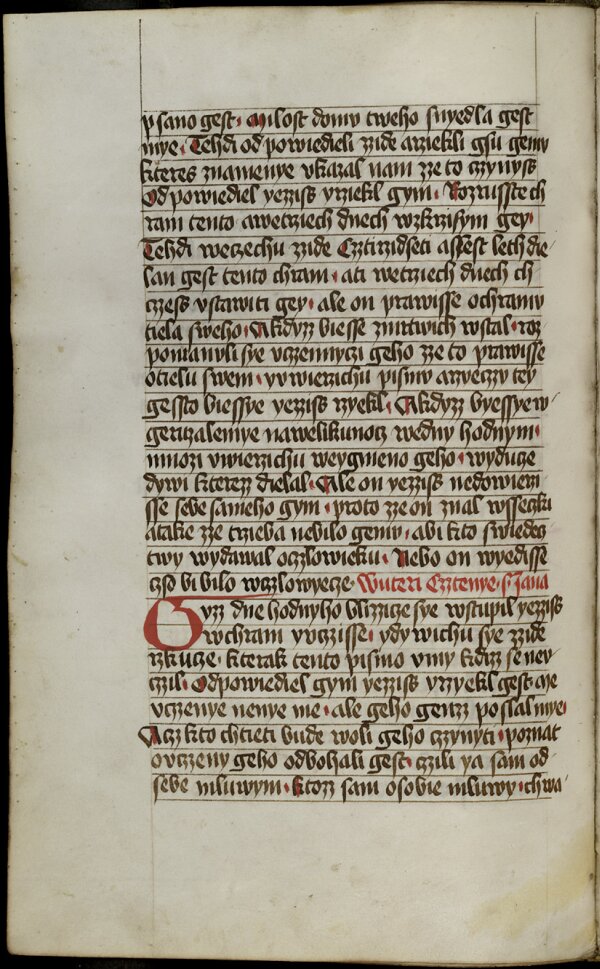 psano gest · Milost domv tweho snyedla gest
mye · Tehdi odpowiedieli zide arziekli gsu gemv
kteres znamenye vkazal nam zze to czynyss
Odpowiediel yezziss yrziekl gym · Rozrusstech
ram tento awetrziech dnech wzkrzisym gey ·
Tehdi wecechu zide Cztirzidseti assest lethdie
lan gest tento chram · ati wetrziech dnech ch
czess vstawiti gey · ale on prawisse ochramv
tiela sweho · Akdyzz biesse zmrtwich wstal · roz
pomanvli sye vczennyczi geho zze to prawisse
otielu swem · yvwierzichu pismv arzeczy tey
gessto biessye yezziss rzyekl · Akdyzz byessye w
geruzalemye nawelikunocz wedny hodnym ·
mnozi vwierzichu weygmeno geho · wyduce
dywi kterezz dielal · Ale on yezziss nedowierzi
sse sebe sameho gym · proto zze on znal wsseczki
atake zze trzieba nebilo gemv · abi kto swiedec
twy wydawal oczlowieku · Nebo on wyedisse
czso bi bilo wczlowyecze · Wuteri Cztenye · s · Jana
Gyzz dne hodnyho blizzice sye wstupil yezziss
wchram yvczisse · ydywichu sye zzide
rzkuce · kterak tento pismo vmy kdizz se nev
czil · Odpowiediel gym yezziss yrzyekl gest · Me
vczenye nenye me · ale geho genzz poslal mye ·
Aczz kto chtieti bude woli geho czzynyti · poznat
o vczeny geho odbohali gest · czili ya sam od
sebe mluwym · ktozz sam osobie mluwy · chwa